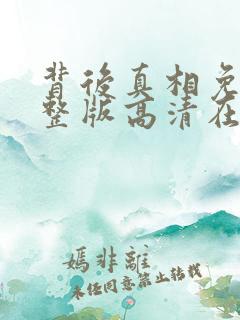 背後真相免
整版高清在
嫣非離
未经同意禁止转载